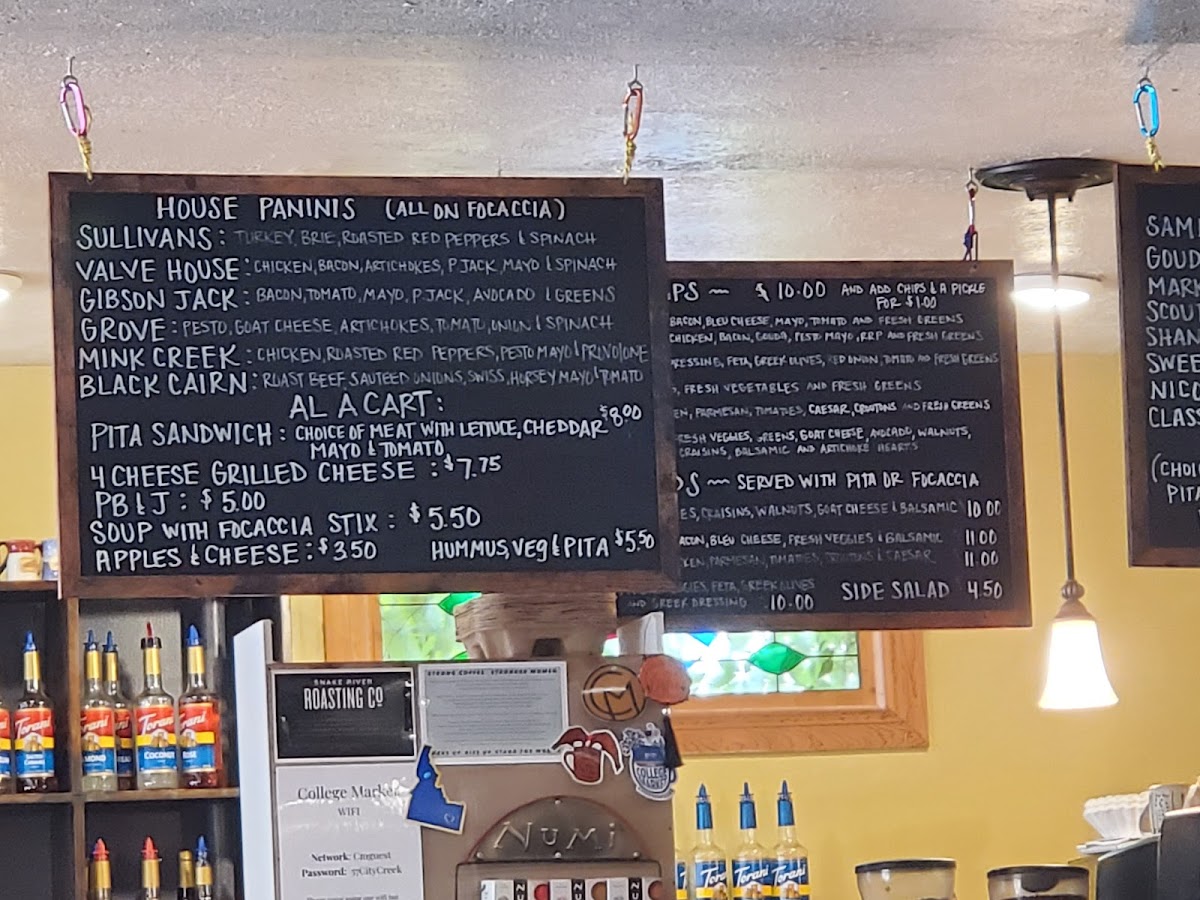 HOUSE PANINIS (ALL ON FOCACCIA)
SULLIVANS: TURKEY, BRIE, ROASTED RED PEPPERS & SPINACH
VALVE HOUSE: CHICKEN, BACON, ARTICHOKES, P.JACK, MAYO & SPINACH
GIBSON JACK: BACON, TOMATO, MAYO, P.JACK, AVOCADO & GREENS
GROVE: PESTO, GOAT CHEESE, ARTICHOKES, TOMATO, ONION & SPINACH
MINK CREEK: CHICKEN, ROASTED RED PEPPERS, PESTO MAYO & PROVOLONE
BLACK CAIRN: ROAST BEEF, SAUTEED ONIONS, SWISS, HORSEY MAYO & TOMATO
AL A CART:
PITA SANDWICH: CHOICE OF MEAT WITH LETTUCE, CHEDDAR $8.00
MAYO & TOMATO
4 CHEESE GRILLED CHEESE: $7.75
PB & J: $5.00
SOUP WITH FOCACCIA STIX: $5.50
APPLES & CHEESE: $3.50 HUMMUS, VEG & PITA $5.50
PS ~ $10.00 AND ADD CHIPS & A PICKLE
FOR $1.00
BACON, BLEU CHEESE, MAYO, TOMATO AND FRESH GREENS
CHICKEN, BACON, GOUDA, PESTO MAYO, RRP AND FRESH GREENS
RESSING, FETA, GREEK OLIVES, RED ONION, TOMATO AND FRESH GREENS
, FRESH VEGETABLES AND FRESH GREENS
EN, PARMESAN, TOMATOES, CAESAR, CROUTONS AND FRESH GREENS
RESH VEGGIES, GREENS, GOAT CHEESE, AVOCADO, WALNUTS,
CRAISINS, BALSAMIC AND ARTICHOKE HEARTS
DS ~ SERVED WITH PITA OR FOCACCIA
ES, CRAISINS, WALNUTS, GOAT CHEESE & BALSAMIC 10.00
ACON, BLEU CHEESE, FRESH VEGGIES & BALSAMIC 11.00
KEN, PARMESAN, TOMATOES, CROUTONS & CAESAR 11.00
GGIES, FETA, GREEK OLIVES
AND GREEK DRESSING 10.00 SIDE SALAD 4.50
SAM
GOUD
MARY
SCOU
SHAN
SWEE
NICO
CLAS
(CHOI
PITA
SNAKE RIVER
ROASTING CO
STRONG COFFEE STRONGER WOMEN
College Market
WIFI
Network: Cmguest
Password: 57CityCreek
CM
COLLEGE MARKET
NUMI
Torani
Torani
Torani
COCONUT
Torani
Torani
Torani
Torani